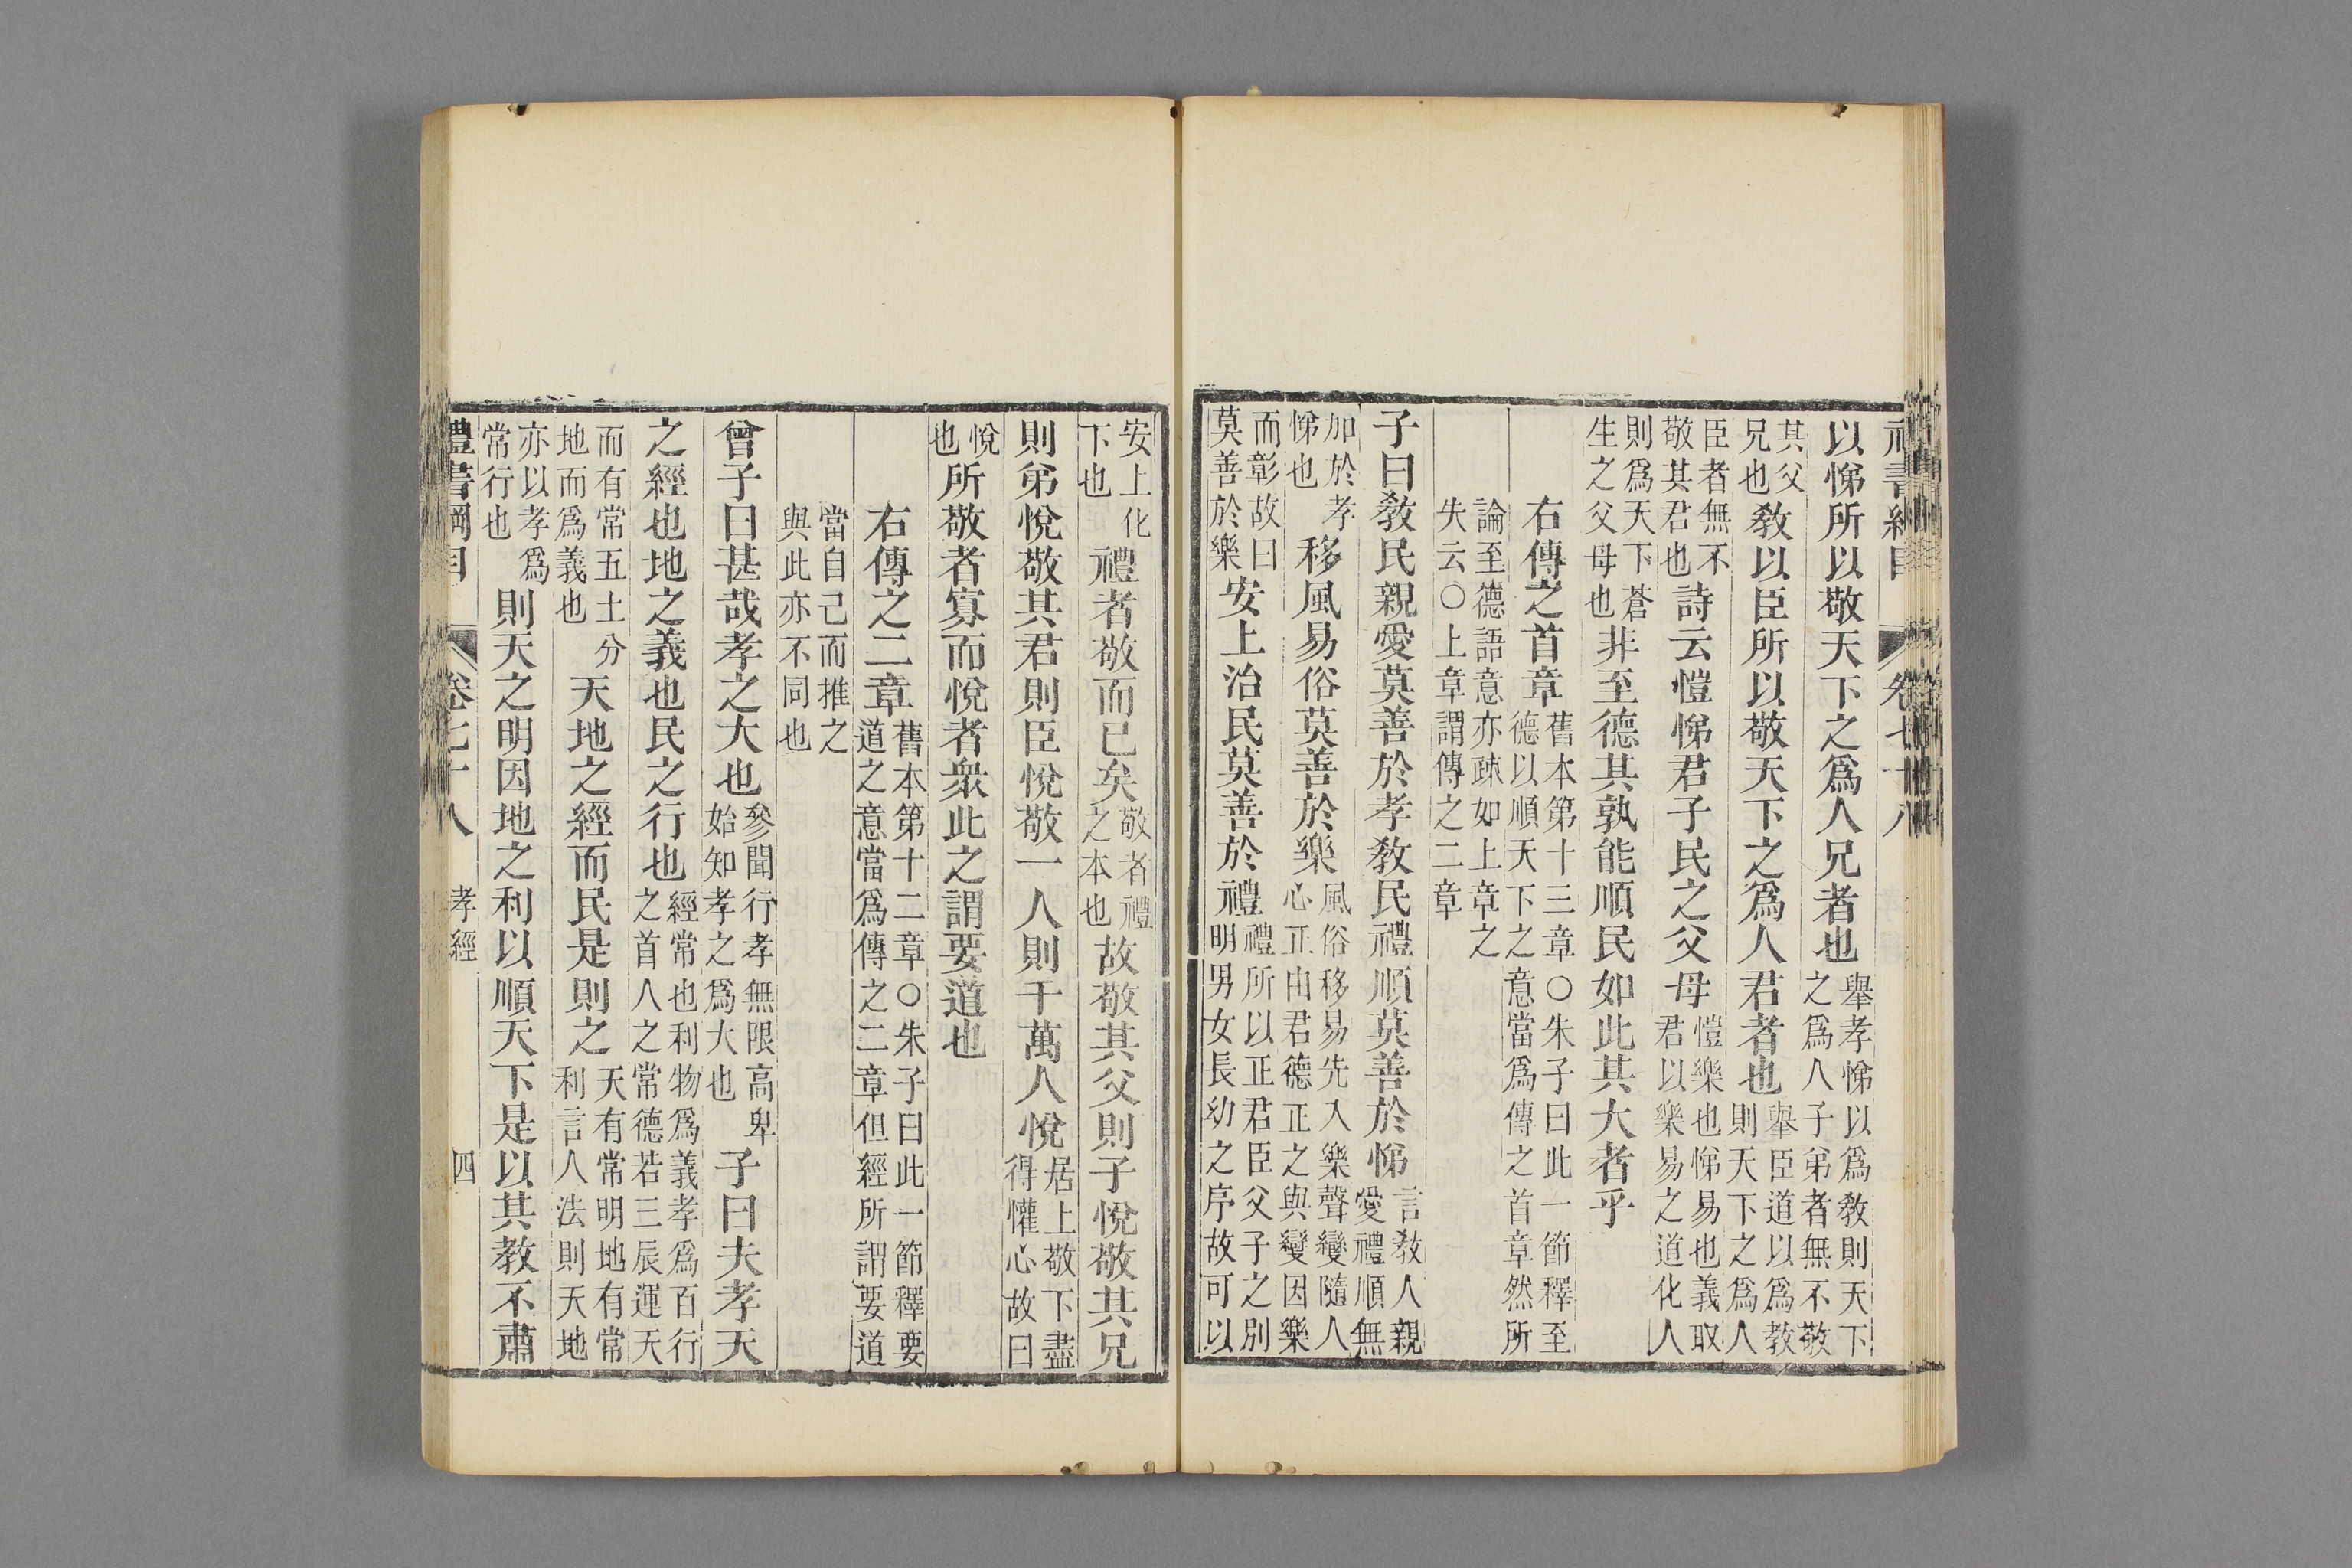 以悌所以敬天下之爲人兄者也舉孝悌以爲敎則天下之爲人子弟者無不敬
其父兄也敎以臣所以敬天下之爲人君者也舉臣道以爲教則天下之爲人
臣者無不敬其君也詩云愷悌君子民之父母愷樂也悌易也義取君以樂易之道化人
則爲天下蒼生之父母也非至德其孰能順民如此其大者乎
右傳之首章舊本第十三章○朱子曰此一節釋至德以順天下之意當爲傳之首章然所
論至德語意亦疎如上章之失云○上章謂傳之二章
子曰敎民親愛莫善於孝敎民禮順莫善於悌言敎人親愛禮順無
加於孝悌也移風易俗莫善於樂風俗移易先入樂聲變隨人心正由君德正之與變因樂
而彰故曰莫善於樂安上治民莫善於禮禮所以正君臣父子之別明男女長幼之序故可以
安上化下也禮者敬而已矣敬者禮之本也故敬其父則子悅敬其兄
則弟悅敬其君則臣悅敬一人則千萬人悅居上敬下盡得懽心故曰
悅也所敬者寡而悅者衆此之謂要道也
右傳之二章舊本第十二章○朱子曰此一節釋要道之意當爲傳之二章但經所謂要道
當自己而推之與此亦不同也
曾子曰甚哉孝之大也參聞行孝無限高卑始知孝之爲大也子曰夫孝天
之經也地之義也民之行也經常也利物爲義孝爲百行之首人之常德若三辰運天
而有常五土分地而爲義也天地之經而民是則之天有常明地有常利言人法則天地
亦以孝爲常行也則天之明因地之利以順天下是以其教不肅
禮書綱目 卷七十八 孝經 四